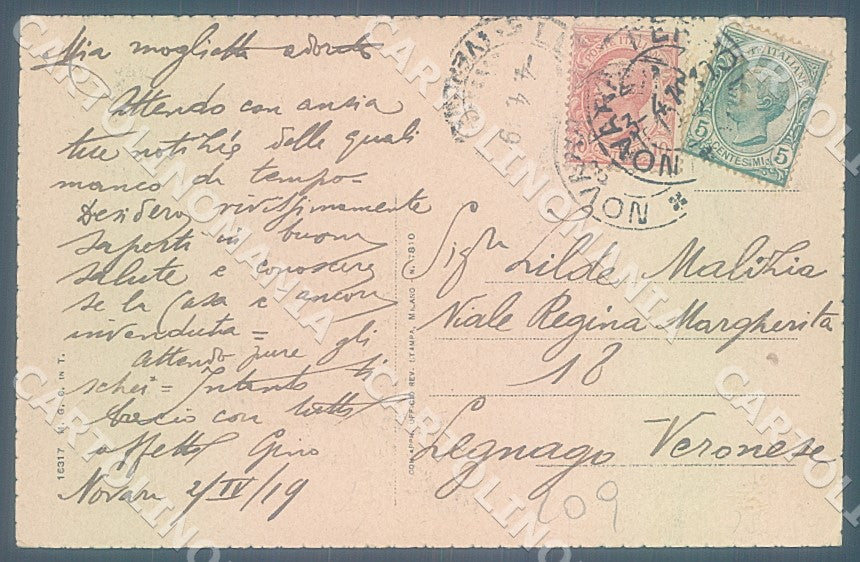 Mia moglietta adorata
Attendo con ansia
tue notizie delle quali
manco da tempo-
Desidero vivissimamente
saperti in buona
salute e conoscere
se la Casa è ancora
invenduta=
Attendo pure gli
schei= Intanto ti
bacio con tutto
affetto Gino
Novara 2/IV/19
16317 M. G. C. IN T.
CON APPR. UFFICIO REV. STAMPA, MILANO N. 7810
4 4 19
NOVARA
NOVARA
POSTE ITALIANE
5 CENTESIMI 5
Sigra Gilda Malizia
Viale Regina Margherita
18
Legnago Veronese
209
CARTOLINOMANIA